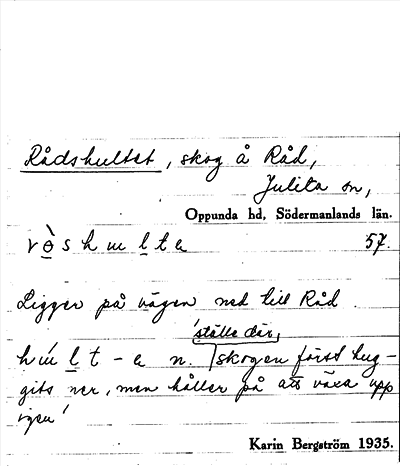 Rådshultet, skog å Råd,
Julita sn,
Oppunda hd, Södermanlands län.
rò̱s h u l̲ t e 57.
Ligger på vägen ned till Råd.
'ställe där
h ú l̲ t - e n. skogen förut hug-
gits ner, men håller på att växa upp
igen'
Karin Bergström 1935.